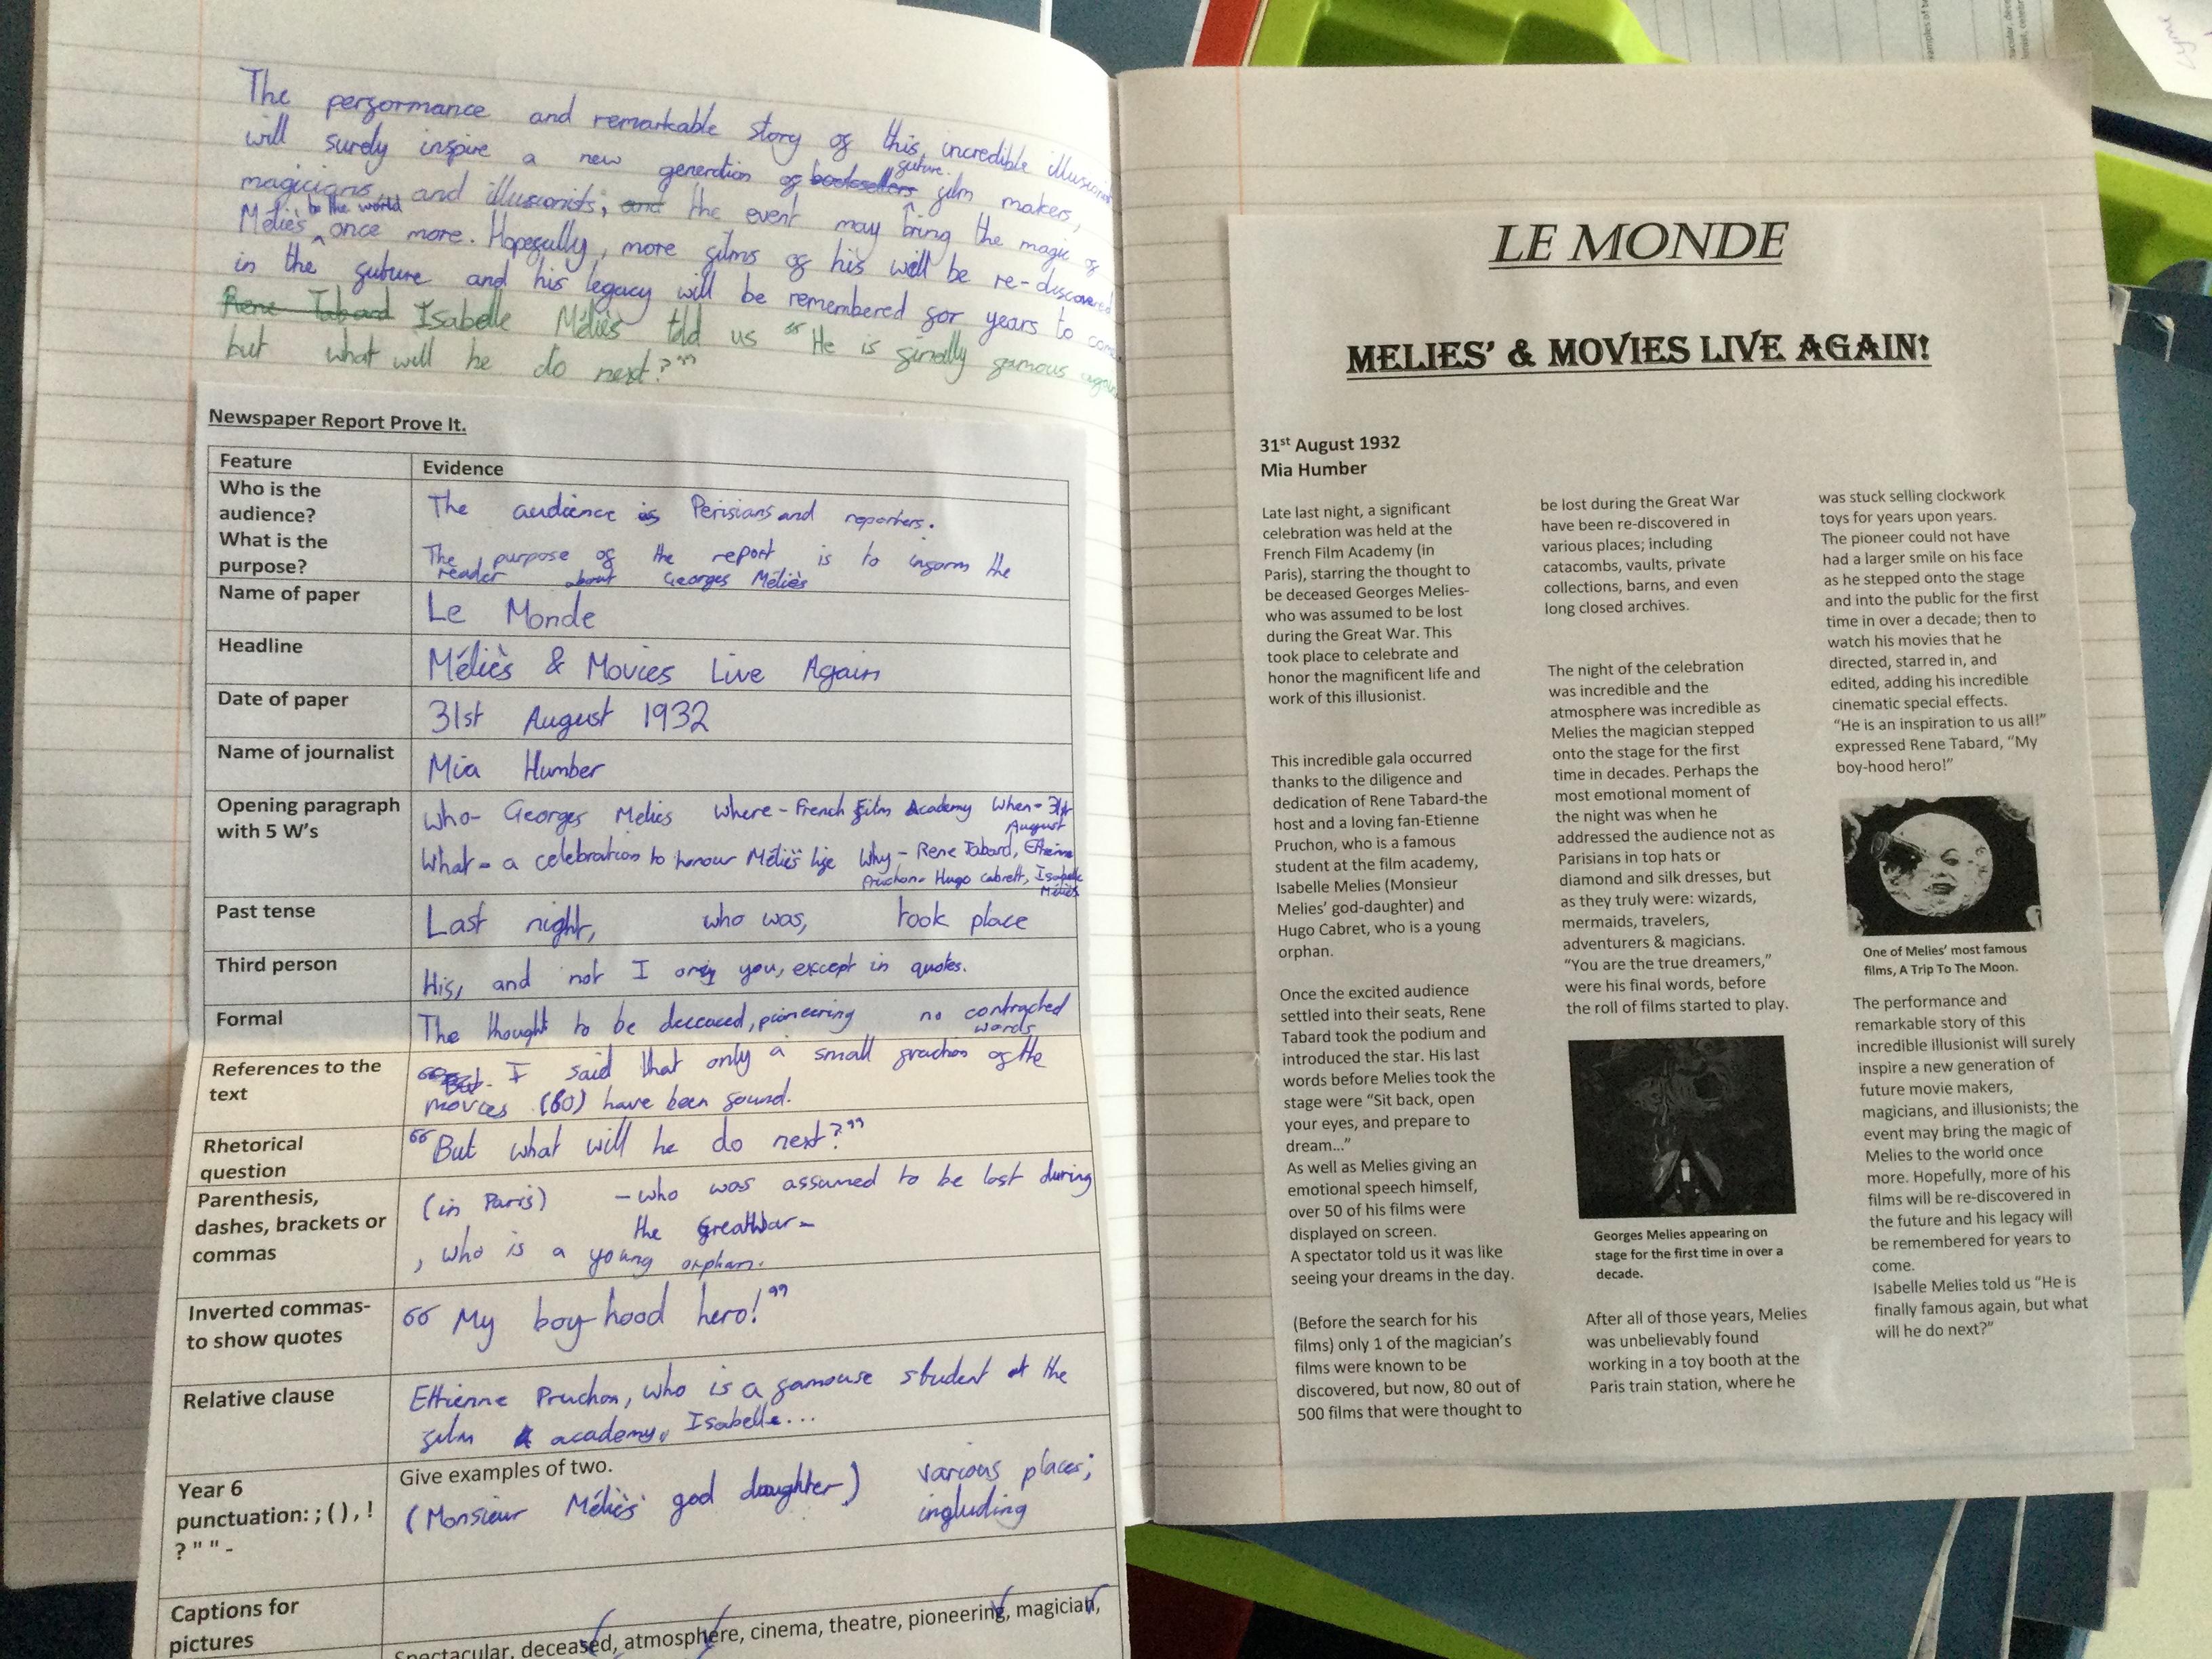 The performance and remarkable story of this incredible
will surely inspire a new generation of booksellers future film makers,
magicians, and illusionists; and the event may bring the magic of
Méliès to the world once more. Hopefully, more films of his will be re-discovered
in the future and his legacy will be remembered for years to come
Rene Tabard Isabelle Méliès told us “He is finally famous again
but what will he do next?”
Newspaper Report Prove It.
Feature Evidence
Who is the
audience?
What is the
purpose?
The audience is Perisians and reporters.
The purpose of the report is to inform the
reader about Georges Méliès
Name of paper Le Monde
Headline Méliès & Movies Live Again
Date of paper 31st August 1932
Name of journalist Mia Humber
Opening paragraph
with 5 W's
Who- Georges Melies Where - French Film Academy When - 31st
August
What - a celebration to honour Méliès life Why - Rene Tabard, Etienne
Pruchon - Hugo Cabrett, Isabelle
Méliès
Past tense Last night, who was, took place
Third person His, and not I or you, except in quotes.
Formal The thought to be deceased, pioneering no contracted
words
References to the
text
I said that only a small fraction of the
movies (80) have been found.
Rhetorical
question
“But what will he do next?”
Parenthesis,
dashes, brackets or
commas
(in Paris) - who was assumed to be lost during
the Great War -
, who is a young orphan.
Inverted commas-
to show quotes
“My boy-hood hero!”
Relative clause Ettienne Pruchon, who is a famouse student at the
film academy, Isabelle...
Year 6
punctuation: ; ( ) , !
? " " -
Give examples of two.
(Monsieur Méliès' god daughter) various places;
including
Captions for
pictures
Spectacular, deceased, atmosphere, cinema, theatre, pioneering, magician,
LE MONDE
MELIES' & MOVIES LIVE AGAIN!
31st August 1932
Mia Humber
Late last night, a significant
celebration was held at the
French Film Academy (in
Paris), starring the thought to
be deceased Georges Melies-
who was assumed to be lost
during the Great War. This
took place to celebrate and
honor the magnificent life and
work of this illusionist.
This incredible gala occurred
thanks to the diligence and
dedication of Rene Tabard-the
host and a loving fan-Etienne
Pruchon, who is a famous
student at the film academy,
Isabelle Melies (Monsieur
Melies' god-daughter) and
Hugo Cabret, who is a young
orphan.
Once the excited audience
settled into their seats, Rene
Tabard took the podium and
introduced the star. His last
words before Melies took the
stage were “Sit back, open
your eyes, and prepare to
dream…”
As well as Melies giving an
emotional speech himself,
over 50 of his films were
displayed on screen.
A spectator told us it was like
seeing your dreams in the day.
(Before the search for his
films) only 1 of the magician's
films were known to be
discovered, but now, 80 out of
500 films that were thought to
be lost during the Great War
have been re-discovered in
various places; including
catacombs, vaults, private
collections, barns, and even
long closed archives.
The night of the celebration
was incredible and the
atmosphere was incredible as
Melies the magician stepped
onto the stage for the first
time in decades. Perhaps the
most emotional moment of
the night was when he
addressed the audience not as
Parisians in top hats or
diamond and silk dresses, but
as they truly were: wizards,
mermaids, travelers,
adventurers & magicians.
“You are the true dreamers,”
were his final words, before
the roll of films started to play.
Georges Melies appearing on
stage for the first time in over a
decade.
After all of those years, Melies
was unbelievably found
working in a toy booth at the
Paris train station, where he
was stuck selling clockwork
toys for years upon years.
The pioneer could not have
had a larger smile on his face
as he stepped onto the stage
and into the public for the first
time in over a decade; then to
watch his movies that he
directed, starred in, and
edited, adding his incredible
cinematic special effects.
“He is an inspiration to us all!”
expressed Rene Tabard, “My
boy-hood hero!”
One of Melies' most famous
films, A Trip To The Moon.
The performance and
remarkable story of this
incredible illusionist will surely
inspire a new generation of
future movie makers,
magicians, and illusionists; the
event may bring the magic of
Melies to the world once
more. Hopefully, more of his
films will be re-discovered in
the future and his legacy will
be remembered for years to
come.
Isabelle Melies told us “He is
finally famous again, but what
will he do next?”